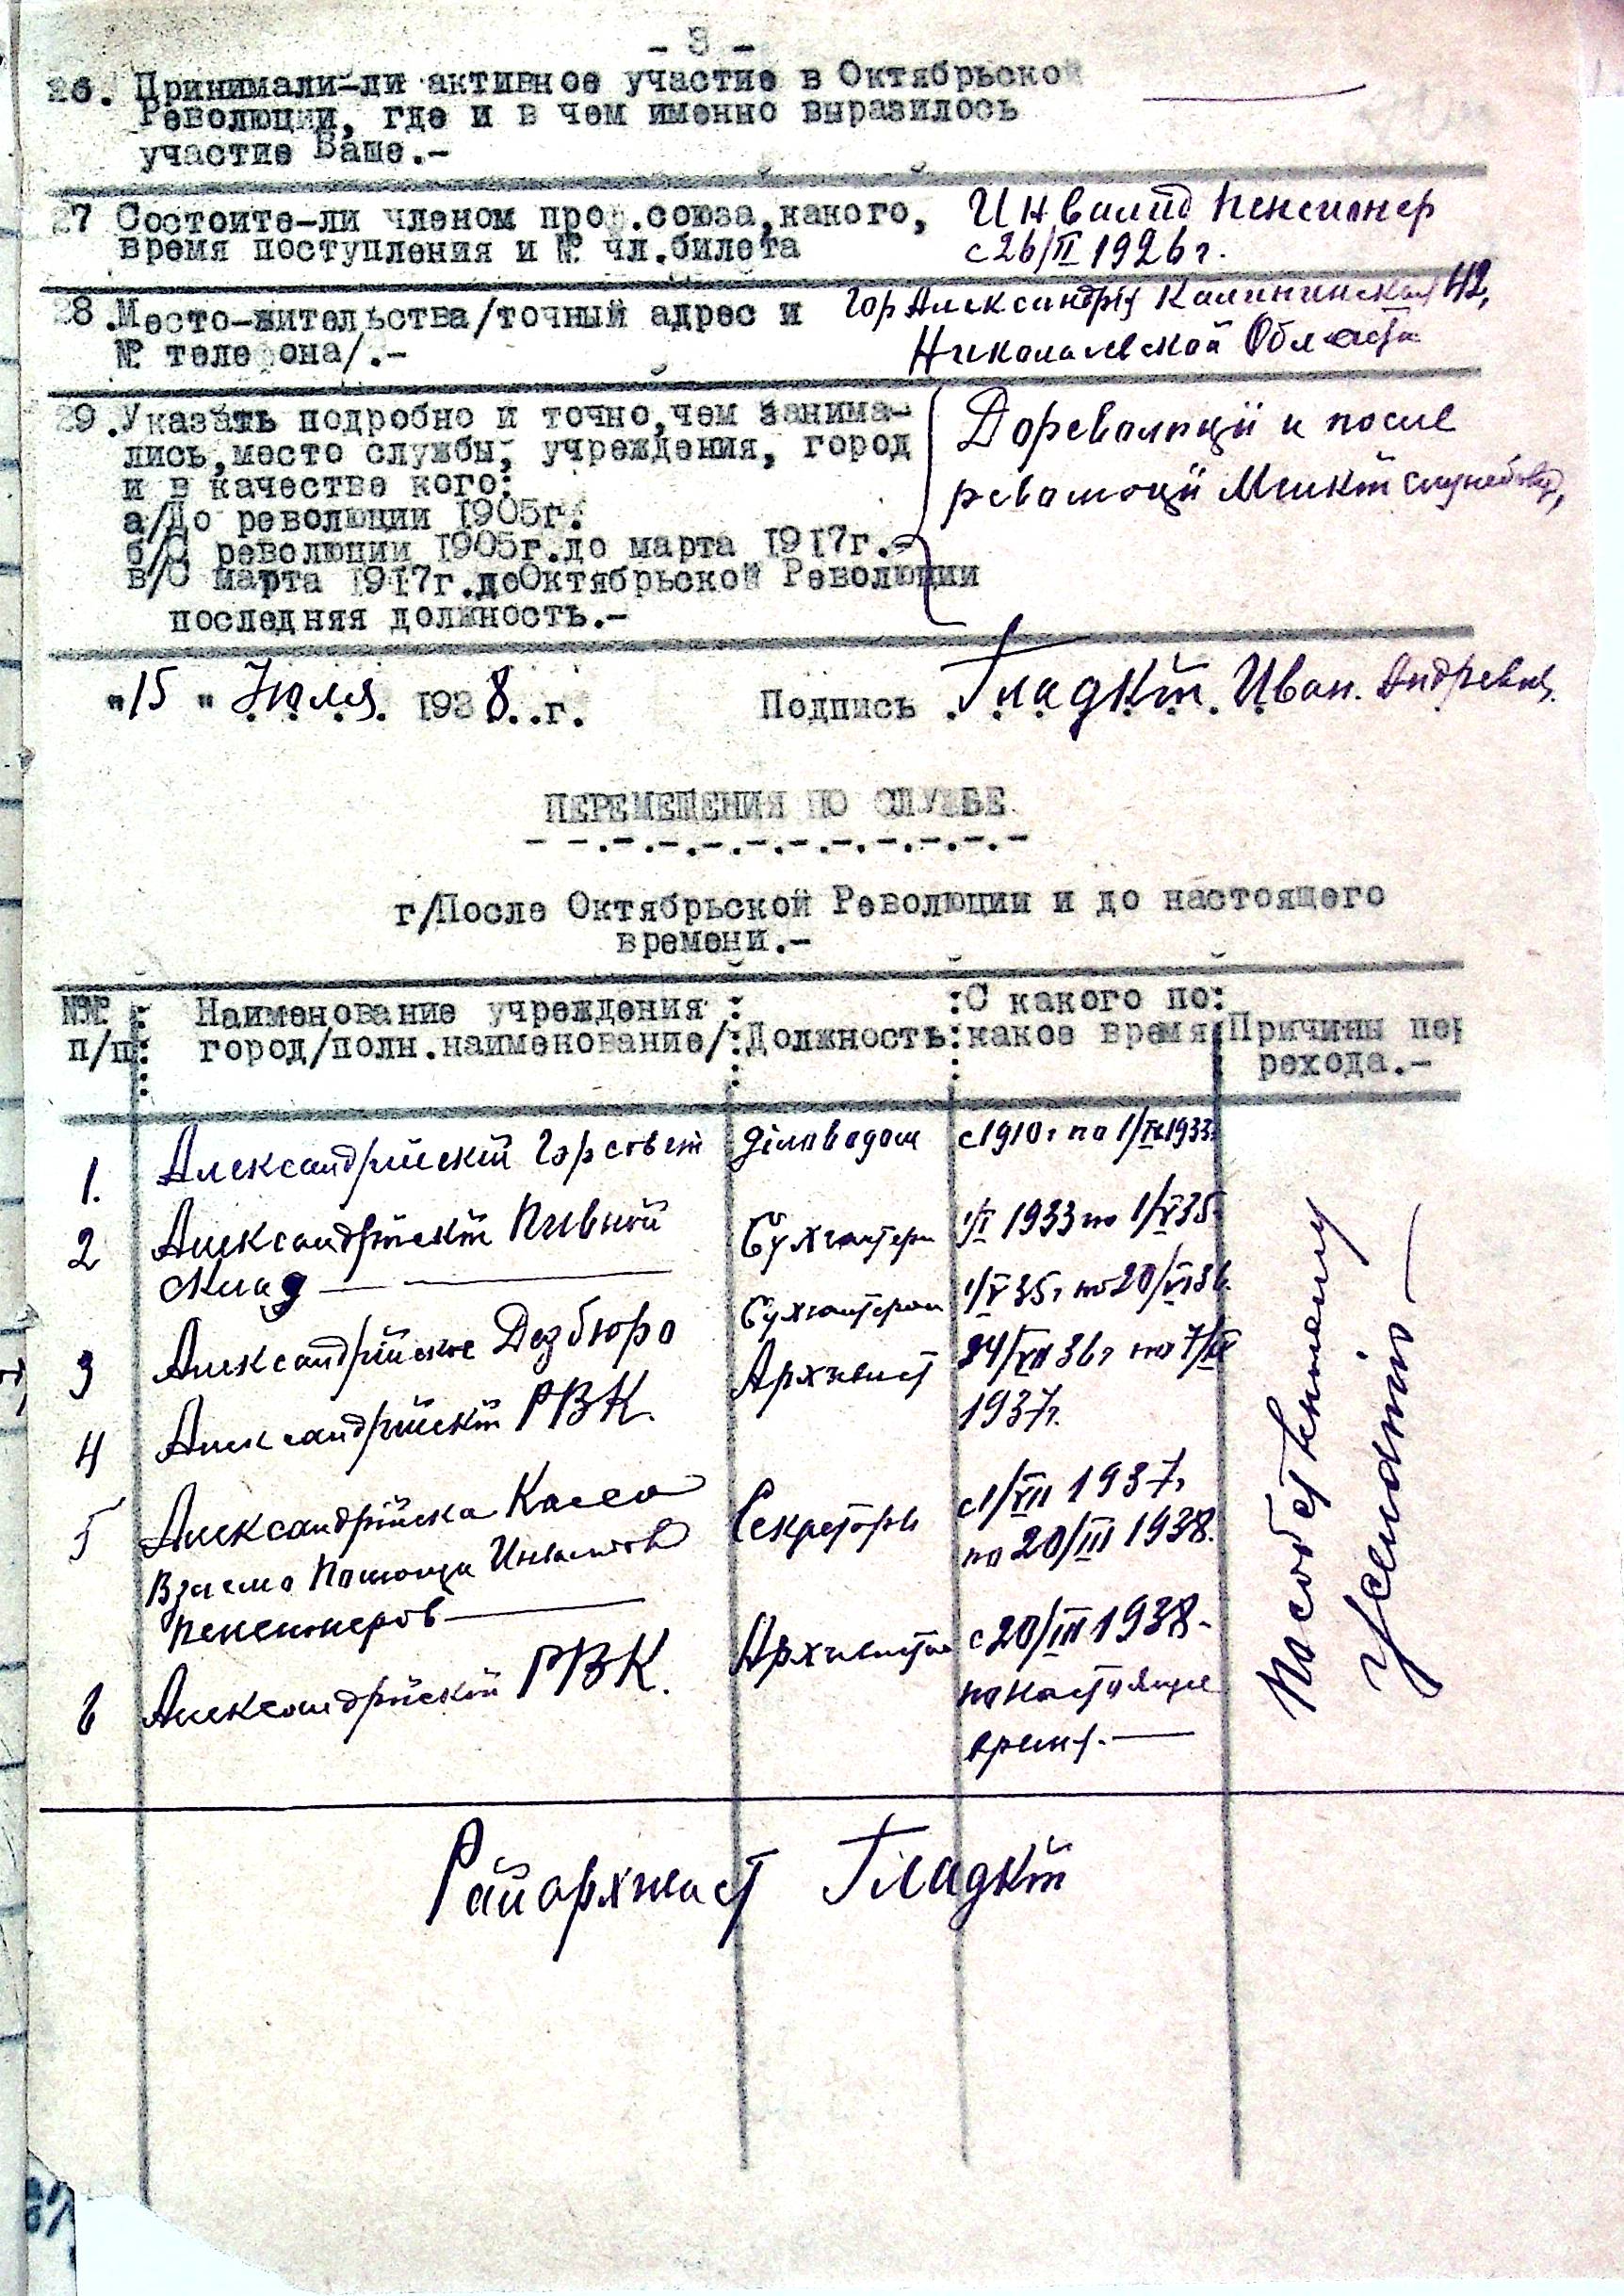 - 3 -
26. Принимали-ли активное участие в Октябрьской
Революции, где и в чем именно выразилось
участие Ваше.-
27 Состоите-ли членом проф.союза,какого,
время поступления и № чл.билета
Инвалид пенсионер
с 26/II 1926 г.
28.Место-жительства/точный адрес и
№ телефона/.-
Гор Александрія Калининская 42,
Николаевской Области
29.Указать подробно и точно,чем занима-
лись,место службы, учреждения, город
и в качестве кого:
а/До революции 1905г.
б/С революции 1905г.до марта 1917г.-
в/С марта 1917г.доОктябрьской Революции
последняя должность.-
До революціи и после
революціи Мелкій служебовец,
"15" Июля 1938.г.
Подпись Гладкій Иван. Андреевич.
ПЕРЕМЕЩЕНИЯ ПО СЛУЖБЕ
г/После Октябрьской Революции и до настоящего
времени.-
№№ п/п: Наименование учреждения город/полн.наименование/: Должность: С какого по: какое время: Причины пе рехода.-
1. Александрійскій Горсовет діловодом с 1910 г по 1/IV 1933.
2 Александрійскій Пивной склад — Бухгалтер 1/I 1933 по 1/V 35.
3 Александрійское Дезбюро Бухгалтером 1/V 35 г по 20/VI 36.
4 Александрійскій РВК. Архивист 24/VII 36 г по 7/IX 1937 г.
5 Александрійска Касса Взаемо Помощи Инвалидов пенсионеров — Секретарь с 1/VII 1937 г по 20/III 1938.
6 Александрійскій РВК. Архивистом с 20/III 1938 - по настоящее время. —
По собственному желанію —
Райархивист Гладкій